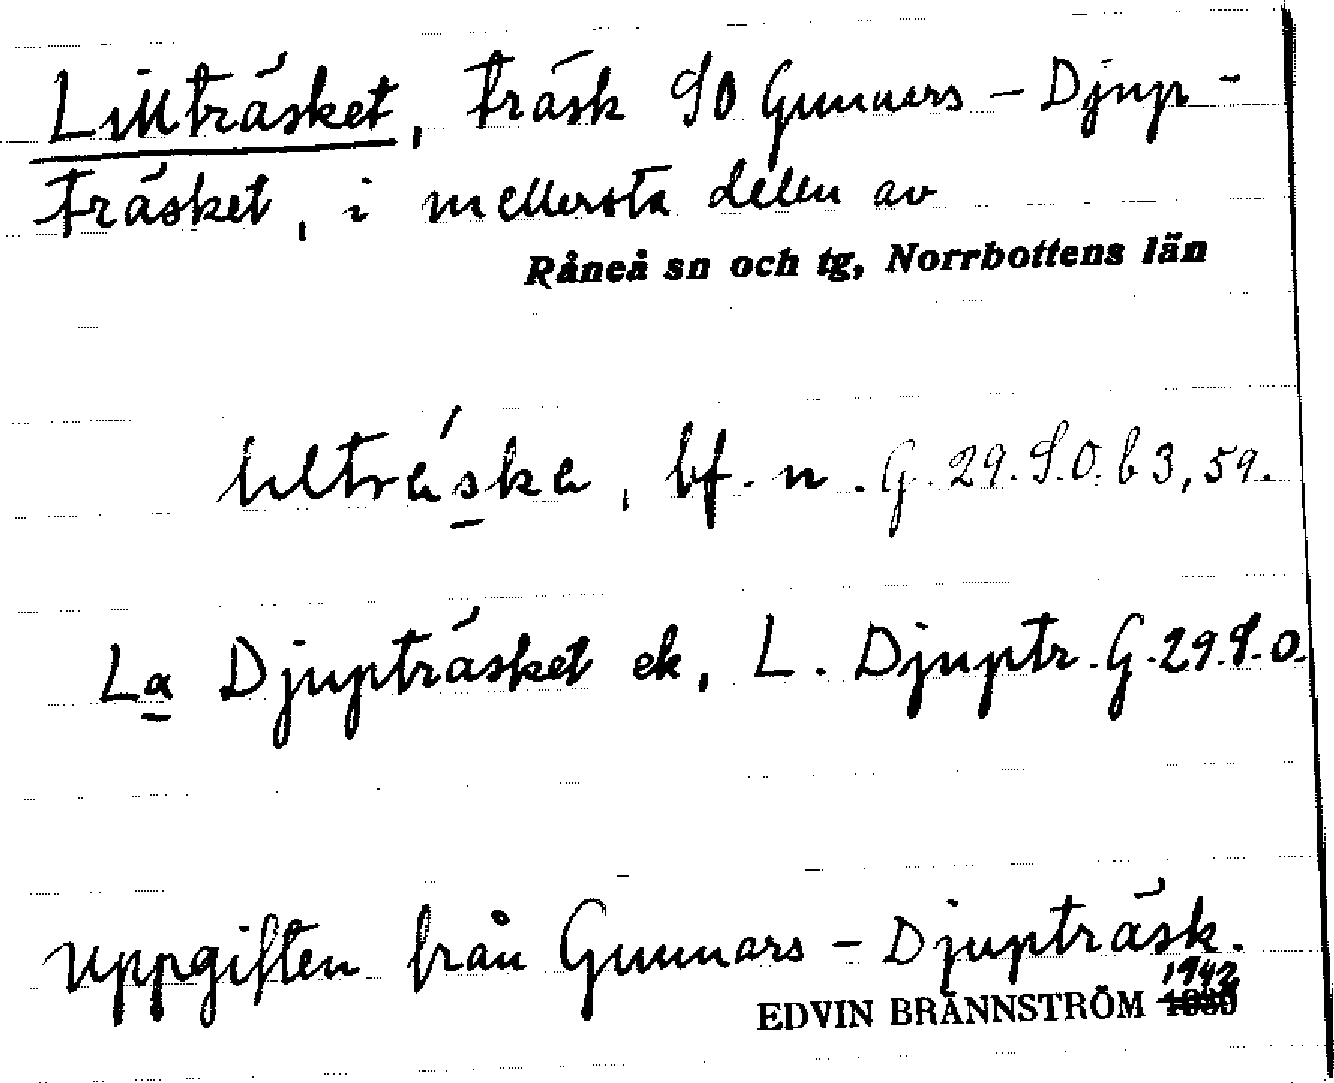 Lillträsket, träsk SO Gunnars-Djup-
träsket, i mellersta delen av
Råneå sn och tg, Norrbottens län
bf. n. G. 29. S.O. b 3, 59.
La Djupträsket ek, L. Djuptr. G. 29. S.O.
Uppgiften från Gunnars-Djupträsk.
1942
EDVIN BRÄNNSTRÖM 1930